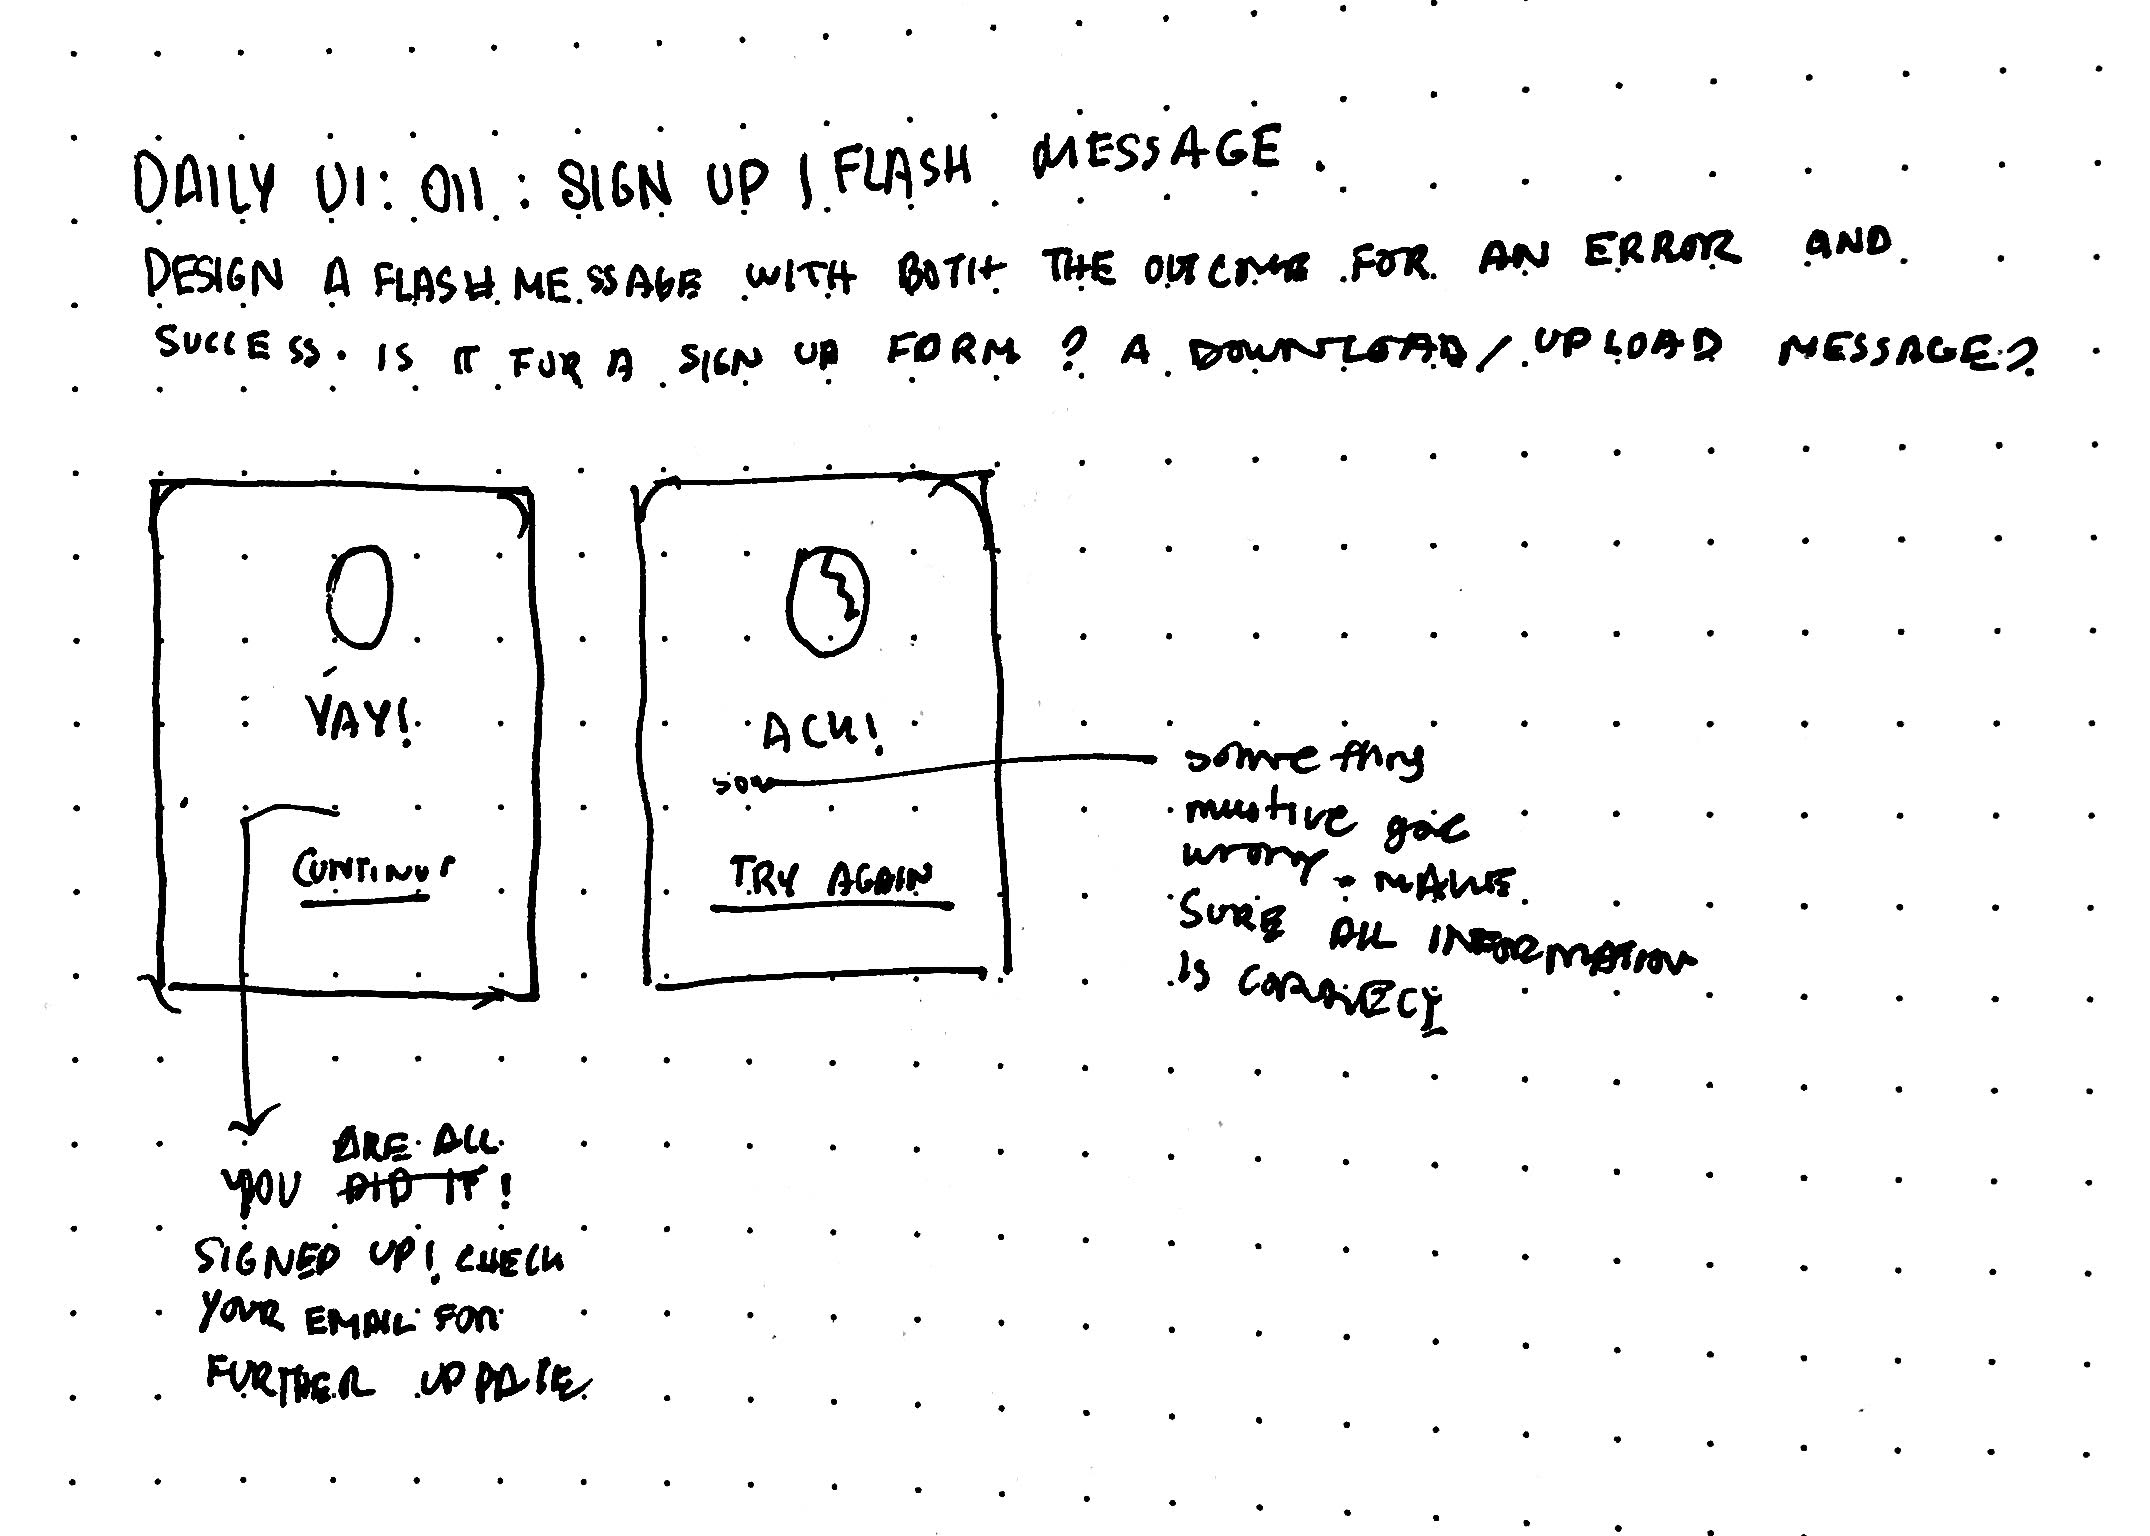 DAILY UI: 011 : SIGN UP | FLASH MESSAGE.
DESIGN A FLASH MESSAGE WITH BOTH THE OUTCOME FOR AN ERROR AND
SUCCESS. IS IT FOR A SIGN UP FORM? A DOWNLOAD/UPLOAD MESSAGE?
YAY!
CONTINUE
ACK!
som
TRY AGAIN
something
must've goe
wrong. MAKE
SURE ALL INFORMATION
IS CORRECT
ARE ALL
YOU DID IT!
SIGNED UP! CHECK
YOUR EMAIL FOR
FURTHER UPDATE